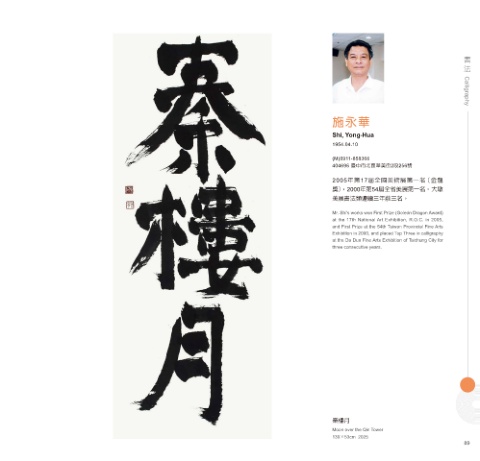 秦樓月
書法 Calligraphy
施永華
Shi, Yong-Hua
1954.04.10
2005年第17屆全國美術展第一名(金龍
獎)、2000年第54屆全省美展第一名、大墩
美展書法類連續三年前三名。
Mr. Shi's works won First Prize (Golden Dragon Award)
at the 17th National Art Exhibition, R.O.C. in 2005,
and First Prize at the 54th Taiwan Provincial Fine Arts
Exhibition in 2000, and placed Top Three in calligraphy
at the Da Dun Fine Arts Exhibition of Taichung City for
three consecutive years.
秦樓月
Moon over the Qin Tower